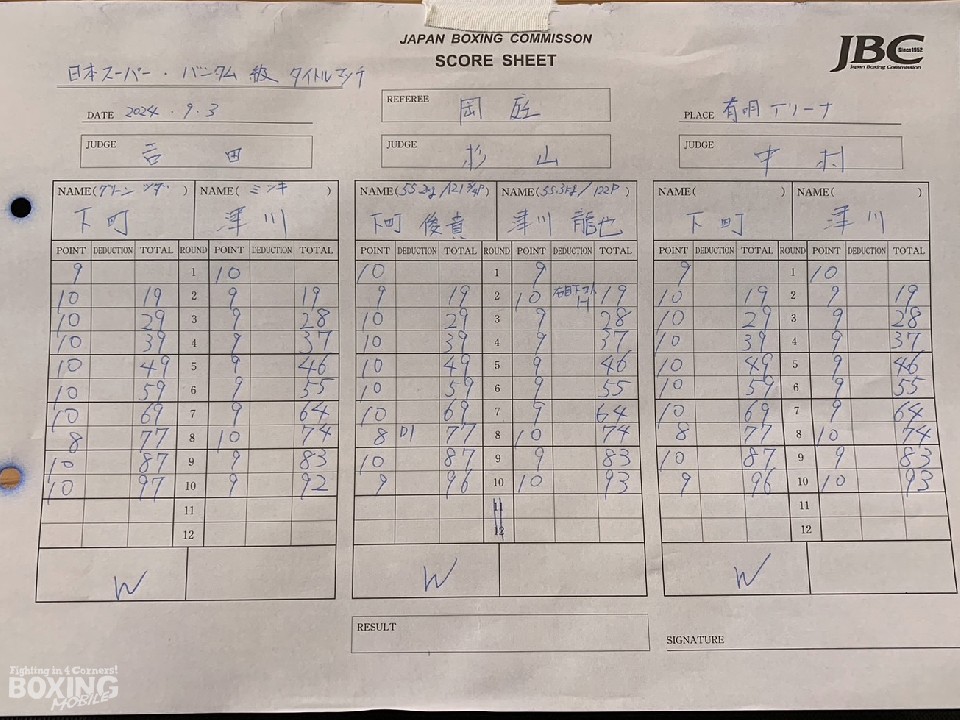 JAPAN BOXING COMMISSON
SCORE SHEET
JBC
Since1952
Japan Boxing Commission
日本スーパー・バンタム級 タイトルマッチ
DATE 2024.9.3
REFEREE
PLACE 有明アリーナ
JUDGE 吉田
JUDGE 杉山
JUDGE 中村
NAME(グリーンツダ) NAME(ミツキ) NAME( NAME( NAME( ) NAME( )
下町 津川 下町 俊貴 津川 龍也 下町 津川
POINT DEDUCTION TOTAL ROUND POINT DEDUCTION TOTAL POINT DEDUCTION TOTAL ROUND POINT DEDUCTION TOTAL POINT DEDUCTION TOTAL ROUND POINT DEDUCTION TOTAL
9 1 10 10 1 9 9 1 10
10 19 2 9 19 9 19 2 10 19 10 19 2 9 19
10 29 3 9 28 10 29 3 9 28 10 29 3 9 28
10 39 4 9 37 10 39 4 9 37 10 39 4 9 37
10 49 5 9 46 10 49 5 9 46 10 49 5 9 46
10 59 6 9 55 10 59 6 9 55 10 59 6 9 55
10 69 7 9 64 10 69 7 9 64 10 69 7 9 64
8 77 8 10 74 8 D1 77 8 10 74 8 77 8 10 74
10 87 9 9 83 10 87 9 9 83 10 87 9 9 83
10 97 10 9 92 9 96 10 10 93 9 96 10 10 93
11 11 11
12 12 12
W W W
RESULT
SIGNATURE
Fighting in 4 Corners!
BOXING
MOBILE